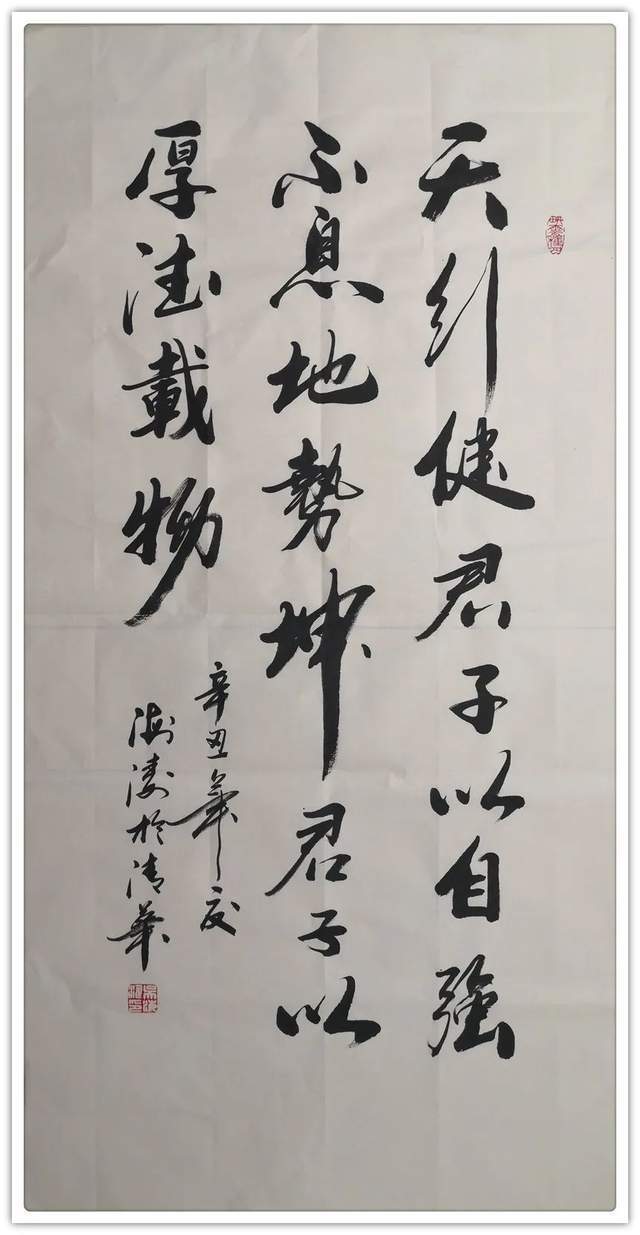 天行健君子以自强
不息地勢坤君子以
厚德載物
辛丑年夏
海濤於清華